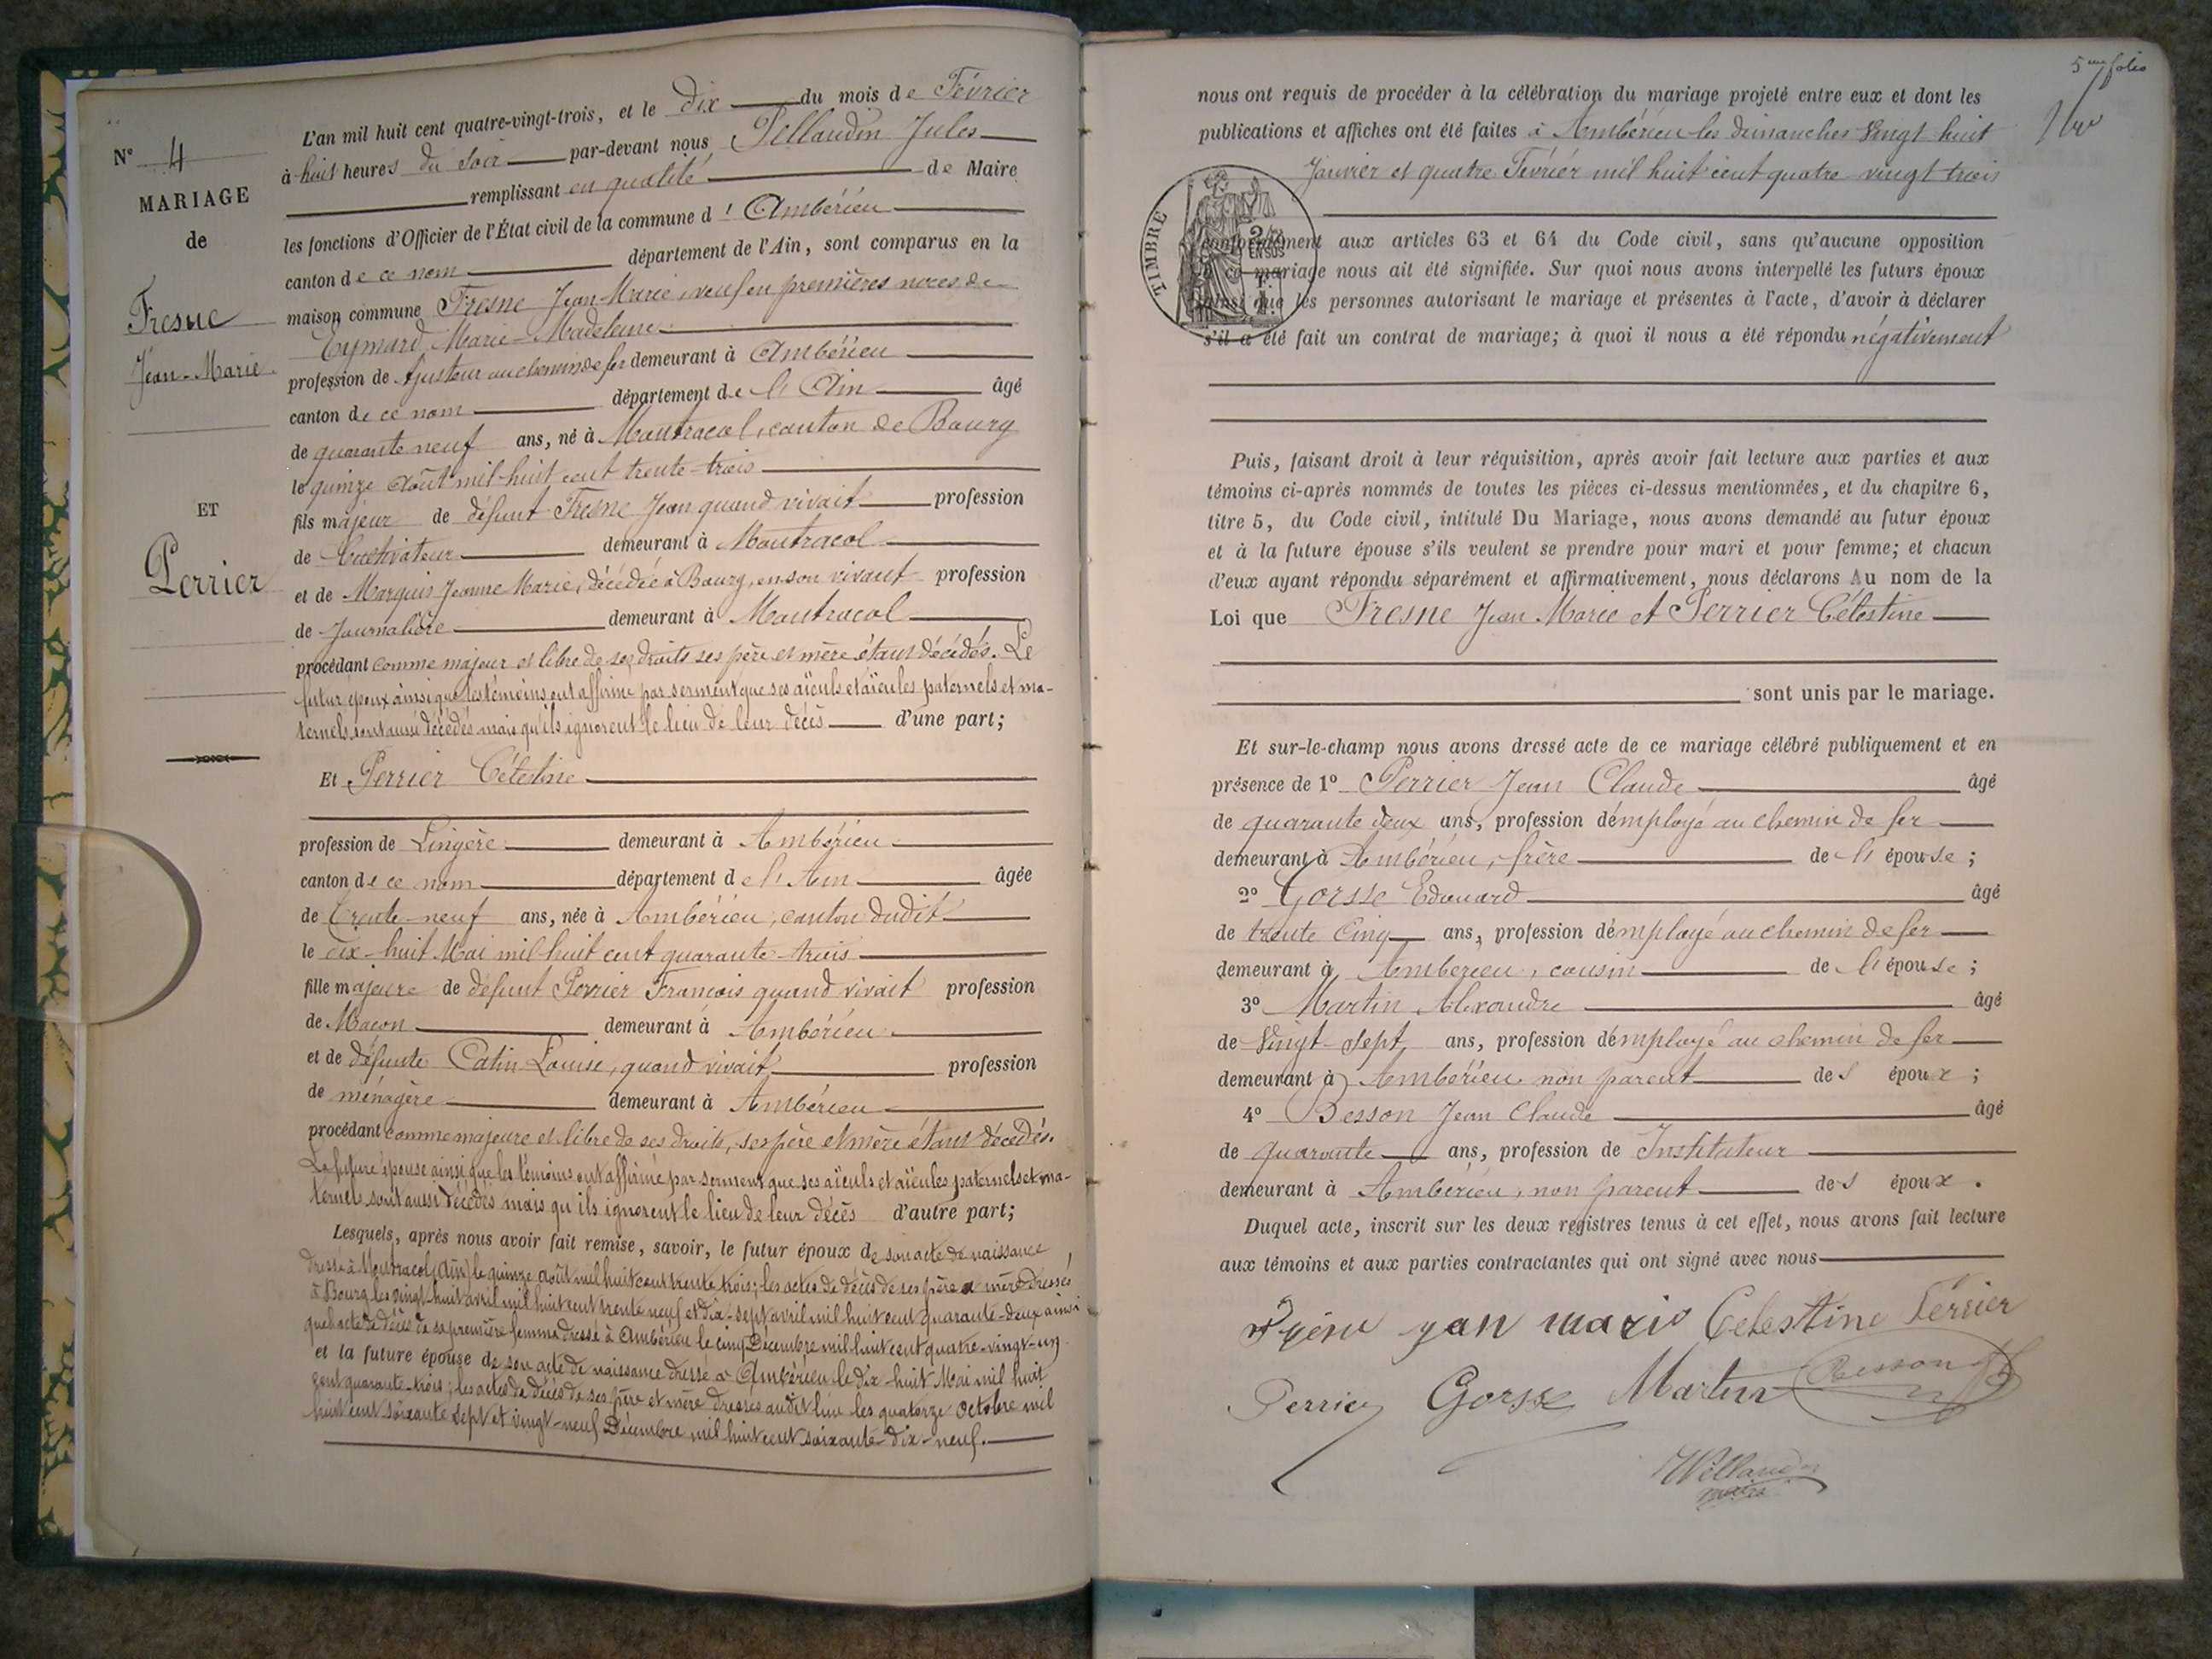 N° 4
MARIAGE
de
Fresne
Jean-Marie
ET
Perrier
L'an mil huit cent quatre-vingt-trois, et le dix du mois de Février
à huit heures du soir par-devant nous Pellaudin Jules
remplissant en qualité de Maire
les fonctions d'Officier de l'État civil de la commune d'Ambérieu
canton de ce nom département de l'Ain, sont comparus en la
maison commune Fresne Jean-Marie, veuf en premières noces de
Eymard Marie-Madeleine
profession de Ajusteur au chemin de fer demeurant à Ambérieu
canton de ce nom département de l'Ain âgé
de quarante neuf ans, né à Montracol, canton de Bourg
le quinze Août mil huit cent trente-trois
fils majeur de défunt Fresne Jean quand vivait profession
de Cultivateur demeurant à Montracol
et de Marquis Jeanne Marie, décédée à Bourg, en son vivant profession
de Journalière demeurant à Montracol
procédant comme majeur et libre de ses droits ses père et mère étant décédés. Le
futur époux ainsi que les témoins ont affirmé par serment que ses aïeuls et aïeules paternels et ma-
ternels sont aussi décédés mais qu'ils ignorent le lieu de leur décès d'une part;
Et Perrier Célestine
profession de Lingère demeurant à Ambérieu
canton de ce nom département de l'Ain âgée
de trente-neuf ans, née à Ambérieu, canton dudit
le dix-huit Mai mil huit cent quarante-trois
fille majeure de défunt Perrier François quand vivait profession
de Maçon demeurant à Ambérieu
et de défunte Catin Louise, quand vivait profession
de ménagère demeurant à Ambérieu
procédant comme majeure et libre de ses droits, ses père et mère étant décédés.
La future épouse ainsi que les témoins ont affirmé par serment que ses aïeuls et aïeules paternels et ma-
ternels sont aussi décédés mais qu'ils ignorent le lieu de leur décès d'autre part;
Lesquels, après nous avoir fait remise, savoir, le futur époux de son acte de naissance
dressé à Montracol (Ain) le quinze août mil huit cent trente trois; les actes de décès de ses père et mère dressés
à Bourg les vingt huit avril mil huit cent trente neuf et dix-sept avril mil huit cent quarante-deux ainsi
que l'acte de décès de sa première femme dressé à Ambérieu le cinq Décembre mil huit cent quatre-vingt-un
et la future épouse de son acte de naissance dressé à Ambérieu le dix-huit Mai mil huit
cent quarante-trois; les actes de décès de ses père et mère dressés audit lieu les quatorze Octobre mil
huit cent soixante sept et vingt-neuf Décembre mil huit cent soixante-dix-neuf.
5me folio
nous ont requis de procéder à la célébration du mariage projeté entre eux et dont les
publications et affiches ont été faites à Ambérieu les dimanches vingt huit
Janvier et quatre Février mil huit cent quatre-vingt trois
TIMBRE
2/10 EN SUS
conformément aux articles 63 et 64 du Code civil, sans qu'aucune opposition
à ce mariage nous ait été signifiée. Sur quoi nous avons interpellé les futurs époux
ainsi que les personnes autorisant le mariage et présentes à l'acte, d'avoir à déclarer
s'il a été fait un contrat de mariage; à quoi il nous a été répondu négativement
Puis, faisant droit à leur réquisition, après avoir fait lecture aux parties et aux
témoins ci-après nommés de toutes les pièces ci-dessus mentionnées, et du chapitre 6,
titre 5, du Code civil, intitulé Du Mariage, nous avons demandé au futur époux
et à la future épouse s'ils veulent se prendre pour mari et pour femme; et chacun
d'eux ayant répondu séparément et affirmativement, nous déclarons Au nom de la
Loi que Fresne Jean Marie et Perrier Célestine
sont unis par le mariage.
Et sur-le-champ nous avons dressé acte de ce mariage célébré publiquement et en
présence de 1° Perrier Jean Claude âgé
de quarante deux ans, profession d'employé au chemin de fer
demeurant à Ambérieu, frère de l'épouse;
2° Gorsse Edouard âgé
de trente cinq ans, profession d'employé au chemin de fer
demeurant à Ambérieu, cousin de l'épouse;
3° Martin Alexandre âgé
de vingt-sept ans, profession d'employé au chemin de fer
demeurant à Ambérieu, non parent des époux;
4° Besson Jean Claude âgé
de quarante ans, profession de Instituteur
demeurant à Ambérieu, non parent des époux.
Duquel acte, inscrit sur les deux registres tenus à cet effet, nous avons fait lecture
aux témoins et aux parties contractantes qui ont signé avec nous
jan mario Celestine Perrier
Perrier Gorsse Martin Besson
Pellaudin
maire